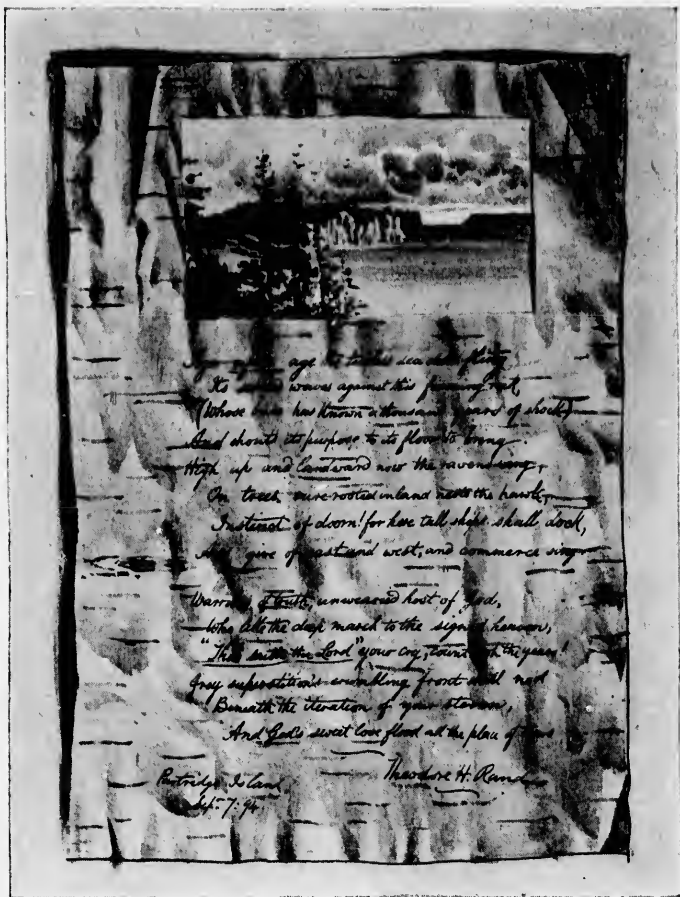 age the sea doth fling
Its waves against this frowning rock,
(Whose base has known a thousand years of shock)
And shouts its purpose to its floor to bring.
High up and landward now the ravens wing,
On trees sure-rooted inland nests the hawk,
Instinct of doom! for here tall ships shall dock,
And give of east and west, and commerce sing
Warriors of truth, unwearied host of God,
Who like the deep march to the signed heaven,
"Thus saith the Lord" your cry, count not the years!
Gray superstition's crumbling front shall nod
Beneath the iteration of your steven,
And God's sweet love flood all the place of tears
Theodore H. Rand
Partridge Island
Sept. 7: 94